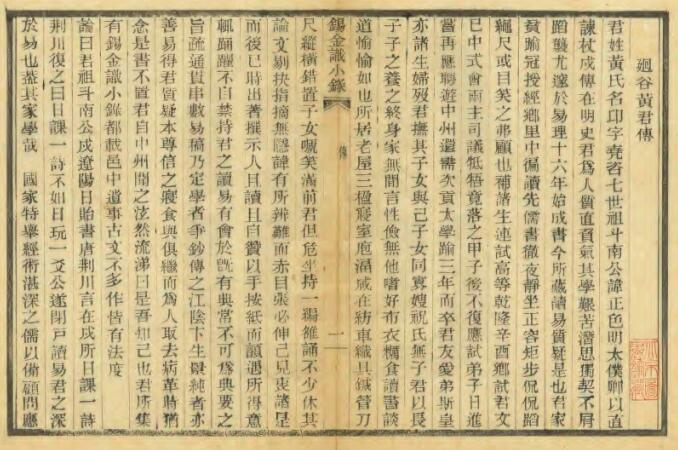 廻谷黃君傳
君姓黃氏名卬字堯咨七世祖斗南公諱正色明太僕卿以直
諫杖戍傳在明史君爲人質直負氣其學艱苦潛思獨契不屑
蹈襲尤邃於易理十六年始成書今所藏讀易質疑是也君家
貧踰冠授經鄉里中徧讀先儒書徹夜靜坐正容矩步侃侃蹈
繩尺或目笑之弗顧也補諸生連試高等乾隆辛酉鄉試君文
已中式會兩主司議牴牾竟落之甲子後不復應試弟子日進
嘗再應聘遊中州還需次貢太學踰三年而卒君友愛弟斯皇
亦諸生婦歿君撫其子女與己子女同寡嫂祝氏無子君以長
子子之養之終身家無閒言性儉無他嗜好布衣糲食讀書談
道愉愉如也所居老屋三楹寢室庖湢咸在紡車織具鍼管刀
錫金識小錄 傳 一
尺縱橫錯置子女嚬笑滿前君但危坐持一編雒誦不少休其
論文剔抉指摘無隱諱有所辨難面赤目張必伸己見衷諸是
而後已時出著撰示人且讀且自贊以手按紙而顫遇所得意
輒踊躍不自禁持君之讀易有會於旣有典常不可爲典要之
旨疏通貫串數易稿乃定學者爭鈔傳之江陰卞生景純者亦
善易得君質疑本尊信之寢食與俱繼而爲人取去病革時猶
念是書不置君自中州聞之泫然流涕曰是吾知己也君所集
有錫金識小錄都載邑中遺事古文不多作皆有法度
論曰君祖斗南公戍遼陽日貽書唐荊川言在戍所日課一詩
荊川復之曰日課一詩不如日玩一爻公遂閉戶讀易君之深
於易也蓋其家學哉 國家特舉經術湛深之儒以備顧問應